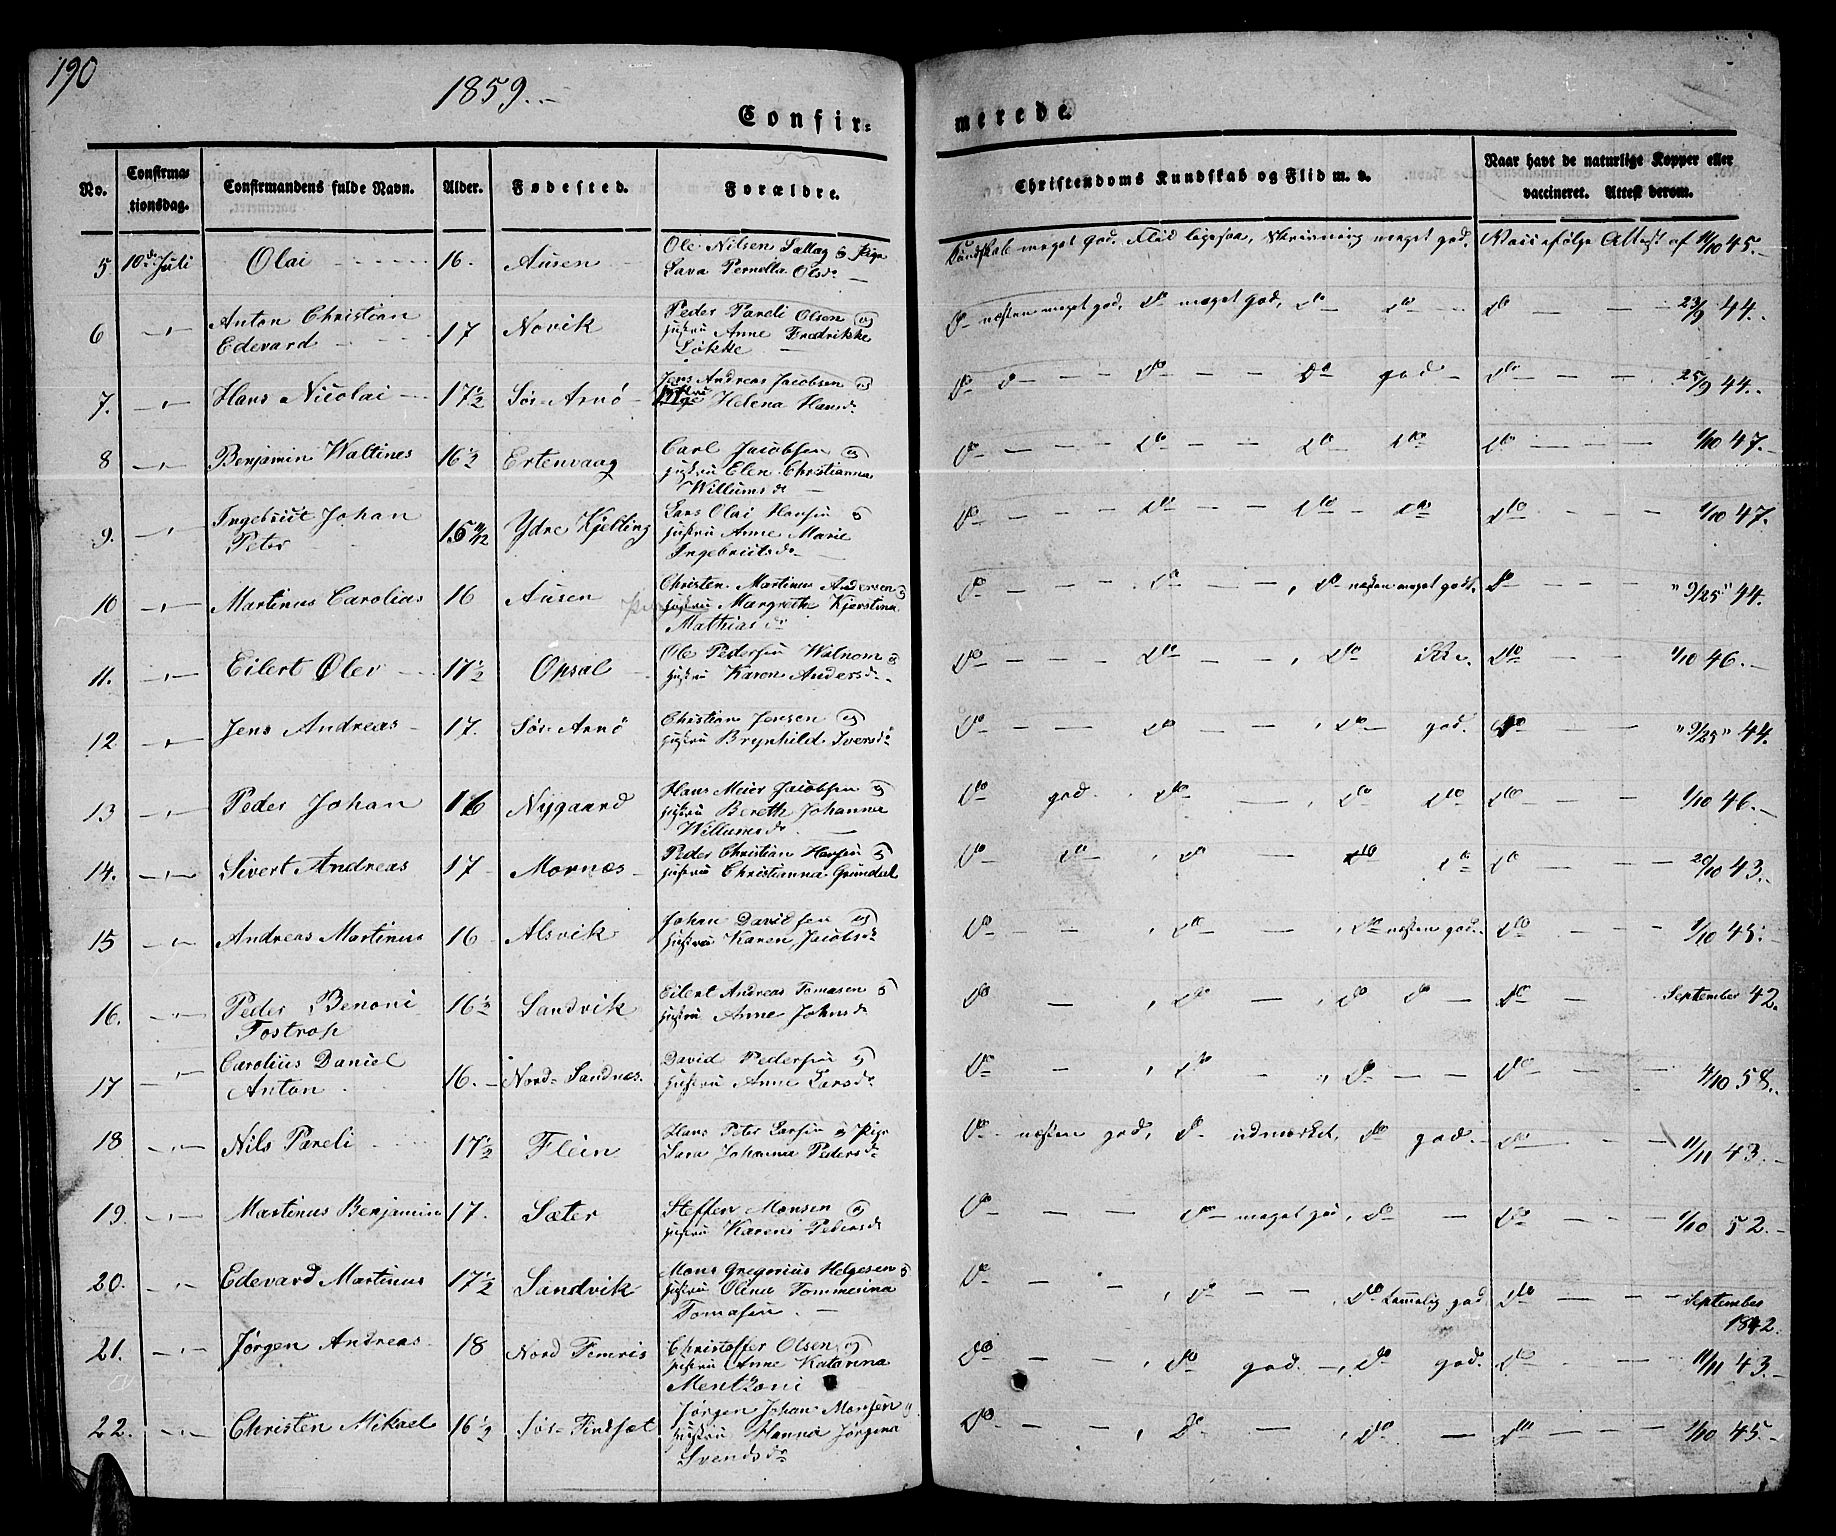 190
1859.
Confir= merede.
No. Confirma-tionsdag. Confirmandens fulde Navn. Alder. Fødested. Forældre. Christendoms Kundskab og Flid m. v. Naar havt de naturlige Kopper eller vaccineret. Attest derom.
5 10de Juli Olai 16. Ausen Ole Nilsen Pige Olsdr Kundskab meget god, Flid ligesaa, Skrivning meget god. Vacc ifølge Attest af 11/10 45.
6 Anton Christian 17 Novik Peder Pareli Olsen og Do næsten meget god, Do meget god, Do Do Do 23/9 44.
Edevard hustru Anne Fredrikke
Løkke
7. Hans Nicolai 17 1/2 Sør-Arnø Jens Andreas Jacobsen og Do Do Do Do god Do 25/9 44.
Helena Hansdr
8 Benjamin Waltines 16 1/2 Ertenvaag Carl Jacobsen og Do Do Do Do Do 1/10 47.
hustru Elen Christianna
Willumsdr
9. Ingebrict Johan 15 11/12 Ydre Kjelling Lars Olai Hansen og Do Do Do Do Do 1/10 47.
Peter hustru Anne Marie
Ingebrictsdr
10 Martinus Carolius 16 Ausen Christen Martinus Andersen og Do Do Do næsten meget godt. Do "9/25" 44.
hustru Margreth Kjerstina
Mathiasdr
11. Eilert Øler 17 1/2 Opsal Ole Pedersen Watnom og Do Do Do Do 1/10 46.
hustru Karen Andersdr
12 Jens Andreas 17. Sør-Arnø Christian Jensen og Do Do Do god. Do "9/25" 44.
hustru Brynhild Iversdr
13 Peder Johan 16 Nygaard Hans Meier Jacobsen og Do god. Do Do Do Do 1/10 46.
hustru Bereth Johanna
Willumsdr
14. Sivert Andreas 17 Mornæs Peder Christian Hansen og Do Do Do Do Do Do 20/10 43.
hustru Christianna
15 Andreas Martinus 16 Alsvik Johan Davidsen og Do Do Do næsten god. Do 1/10 45.
hustru Karen Jacobsdr
16. Peder Benoni 16 1/2 Sandvik Eilert Andreas Tomasen og Do Do Do Do Do September 42.
Fostrop hustru Anne Johnsdr
17 Carolius Daniel 16. Nord-Sandnæs. David Pedersen og Do Do Do Do 4/10 58.
Anton hustru Anne Larsdr
18 Nils Pareli 17 1/2 Flein Hans Peter Larsen og Pige Do næsten god, Do udmærket, Do god. Do 11/11 43.
Sara Johanna Pedersdr
19 Martinus Benjamin 17. Sæter Steffen Monsen og Do Do meget god, Do Do 1/10 52.
hustru Pedersdr
20. Edevard Martinus 17 1/2 Sandvik Mons Gregorius Helgesen og Do Do Do temmelig god Do September
hustru Olina Tommerina 1842.
Tomasen
21. Jørgen Andreas 18 Nord Femris Christoffer Olsen og Do Do god. Do god. Do 11/11 43.
hustru Anne Katarina
Mentzoni
22. Christen Mikael 16 1/2 Sør-Findset Jørgen Johan Monsen og Do Do Do Do 1/10 45.
hustru Hanna Jørgina
Svendsdr